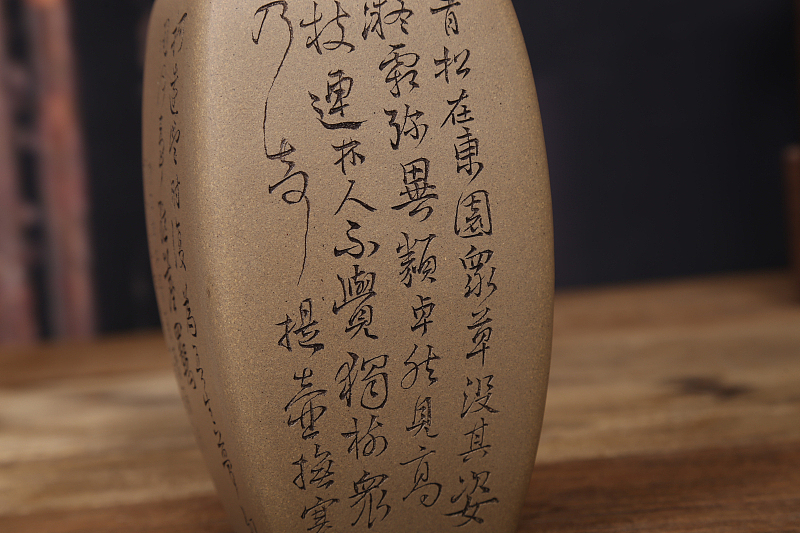 青松在東園衆草没其姿
凝霜殄異類卓然見高
枝連林人不覺獨樹衆
乃奇提壺撫寒
柯遠望時復為